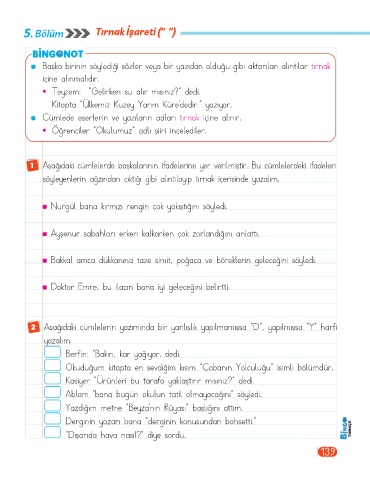 5. Bölüm Tırnak İşareti (" ")
BİNGONOT
Başka birinin söylediği sözler veya bir yazıdan olduğu gibi aktarılan alıntılar tırnak
içine alınmalıdır.
Teyzem: "Gelirken su alır mısınız?" dedi.
Kitapta "Ülkemiz Kuzey Yarım Küre'dedir." yazıyor.
Cümlede eserlerin ve yazıların adları tırnak içine alınır.
Öğrenciler "Okulumuz" adlı şiiri incelediler.
1 Aşağıdaki cümlelerde başkalarının ifadelerine yer verilmiştir. Bu cümlelerdeki ifadeleri
söyleyenlerin ağzından çıktığı gibi alıntılayıp tırnak içerisinde yazalım.
Nurgül bana kırmızı rengin çok yakıştığını söyledi.
Ayşenur sabahları erken kalkarken çok zorlandığını anlattı.
Bakkal amca dükkânına taze simit, poğaça ve böreklerin geleceğini söyledi.
Doktor Emre, bu ilacın bana iyi geleceğini belirtti.
2 Aşağıdaki cümlelerin yazımında bir yanlışlık yapılmamışsa "D", yapılmışsa "Y" harfi
yazalım.
Berfin: "Bakın, kar yağıyor. dedi.
Okuduğum kitapta en sevdiğim kısım "Çobanın Yolculuğu" isimli bölümdür.
Kasiyer "Ürünleri bu tarafa yaklaştırır mısınız?" dedi.
Ablam "bana bugün okulun tatil olmayacağını" söyledi.
Yazdığım metne "Beyza'nın Rüyası" başlığını attım.
Derginin yazarı bana "derginin konusundan bahsetti."
"Dışarıda hava nasıl?" diye sordu.
BİNGO
TÜRKÇE
139